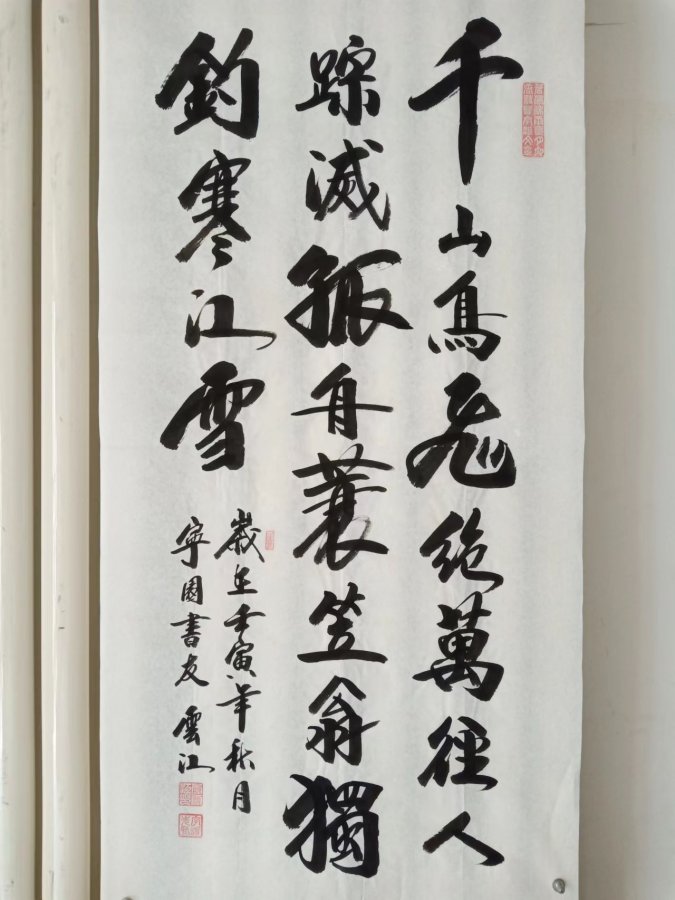 千山鳥飛絶萬徑人
踪滅孤舟蓑笠翁獨
釣寒江雪
歲在壬寅年秋月
寧國書友雲江